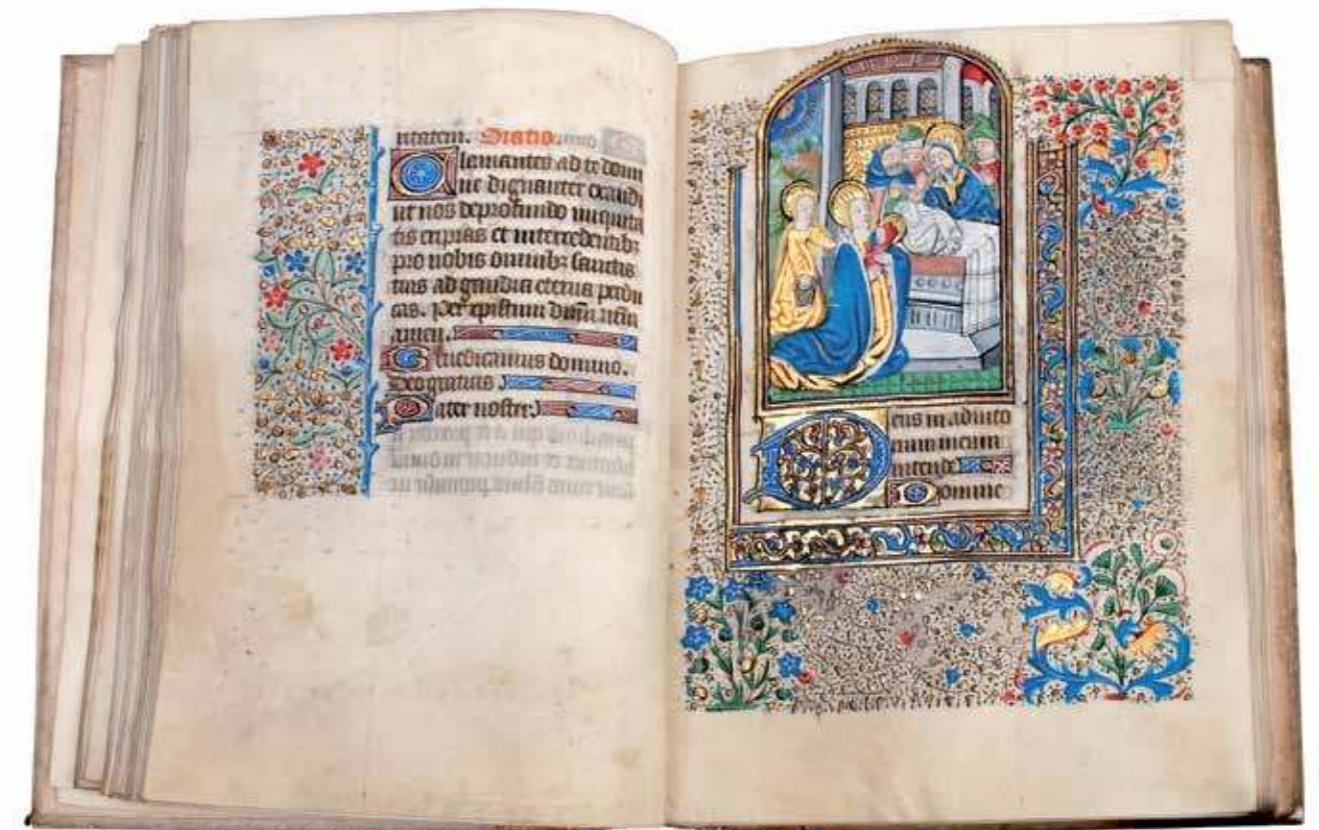 uitatem. Oratio.
Clamantes ad te domi
ne dignanter exaudi
ut nos de profundo iniquita
tis eripias et intercedentibꝫ
pro nobis omnibꝫ sanctis
tuis ad gaudia eterna perdu
cas. Per christum dominum
amen.
Benedicamus domino.
Deo gratias.
Pater noster.
Deus in adiuto
rium meum
intende
Domine